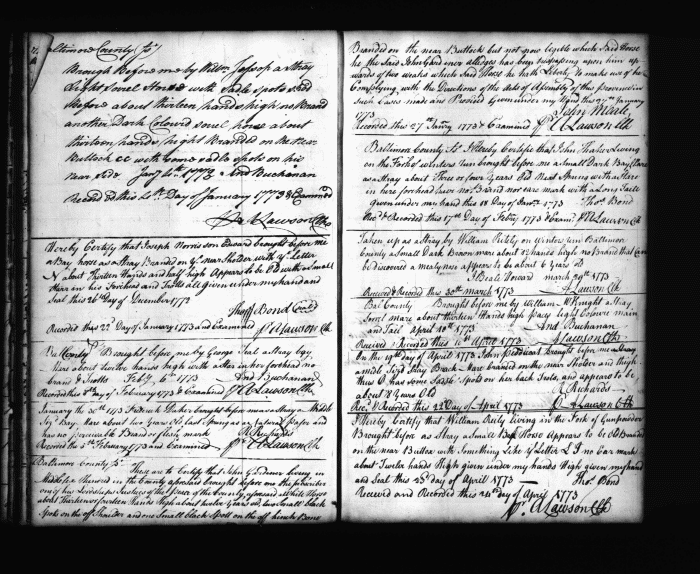 Baltimore County Ss
Brough Before me by Wilson Jessop a Stray
Light Sorrel Horse with Sadle spots and
about thirteen hands high no Brand
another Dark Colourd sorrel horse about
thirteen hands hight Branded on the near
Buttock CC with Some sadle spots on his
near side Jany 4th 1773 And Buchanan
Recorded this 4th Day of January 1773 & Examined
A Lawson Clk
I Hereby Certify that Joseph Norris son Edward brought before me
a Bay horse as a Stray Branded on ye near Sholder with ye Letter
N about thirteen Hands and half high Appears to be Old with a Small
Starr in his Forehead and Trotts all given under my hand and
Seal this 26th Day of December 1772
Thos Bond
Recorded this 22d Day of January 1773 and Examined A Lawson Clk
Bal County Brought before me by George a Stray bay
about twelve hands high with a Star in her forehead no
brand & Trotts Feby 6th 1773 And Buchanan
Recorded this Day of February 1773 & Examined A Lawson Clk
January the 30th 1773 Frederick brought before me a Stray a
Bay Mare about two Years Old last Spring as a natural pacer and
has no perceivable Brand or flesh mark
Recorded this Day of February 1773 and Examined A Lawson Clk
Baltimore County Ss They are to Certify that John Gardener living in
Middlesex Hundred in the County aforesaid brought before me the subscriber
one of his Lordships Justices of the Peace of the County, aforesaid White Horse
about thirteen or fourteen Hands High about twelve Years old, two Small black
Spots on the off Shoulder and one Small black Spot on the off hinch Bone
Branded on the near Buttock but not now legible which Said Horse
he the Said John Gardener alledges has been trespassing upon him up
wards of two weeks which Said Horse he hath Liberty to make use of he
Complying with the Directions of the Acts of Assembly of this province in
Such Cases made and Provided Given under my hand this 27th January
1773 John Merle
Recorded this 27th January 1773 & Examined A Lawson Clk
Baltimore County Ss I Hereby Certify that John Living
on the Forks of Winters run brought before me a Small Dark Bay Mare
as a Stray about three or four Years Old Next Spring with a Starr
in her forehead has no Brand nor ear mark with a Long Taile
given under my hand this 18 Day of 1773 Thos Bond
Recd & Recorded this 17th Day of Febry 1773 & Examd A Lawson Clk
Taken up as a Stray by William on Winters run Baltimore
County a Small Dark Brown mare about 12 hands high no Brand that Can
be discovered a mealy nose appears to be about 6 Years old
I Beale Howard march 29th 1773
Received & Recorded this 30th march 1773 A Lawson Clk
Bal County Brought before me by William Knight a Stray
Sorrel mare about thirteen Hands high pacy light Colour main
and Tail April 10th 1773 And Buchanan
Received & Recorded this 11th April 1773 A Lawson Clk
On the 19th Day of April 1773 John brought before me a Stray
middle Sizd Gray Back mare branded on the near Sholder and thigh
thus O has some Saddle Spots on her back Trots, and appears to be
about 8 Years Old Richards
Recd & Recorded this 22d Day of April 1773 A Lawson Clk
I Hereby Certify that William Reily Living in the Fork of Gunpowder
Brought before as Stray a Small Bay Horse appears to be Old Branded
on the near Buttock with Something Like ye Letter L I no Ear mark
about Twelve hands High given under my hands High given my hand
and Seal this 23d Day of April 1773 Thos Bond
Received and Recorded this 24th day of April 1773
A Lawson Clk